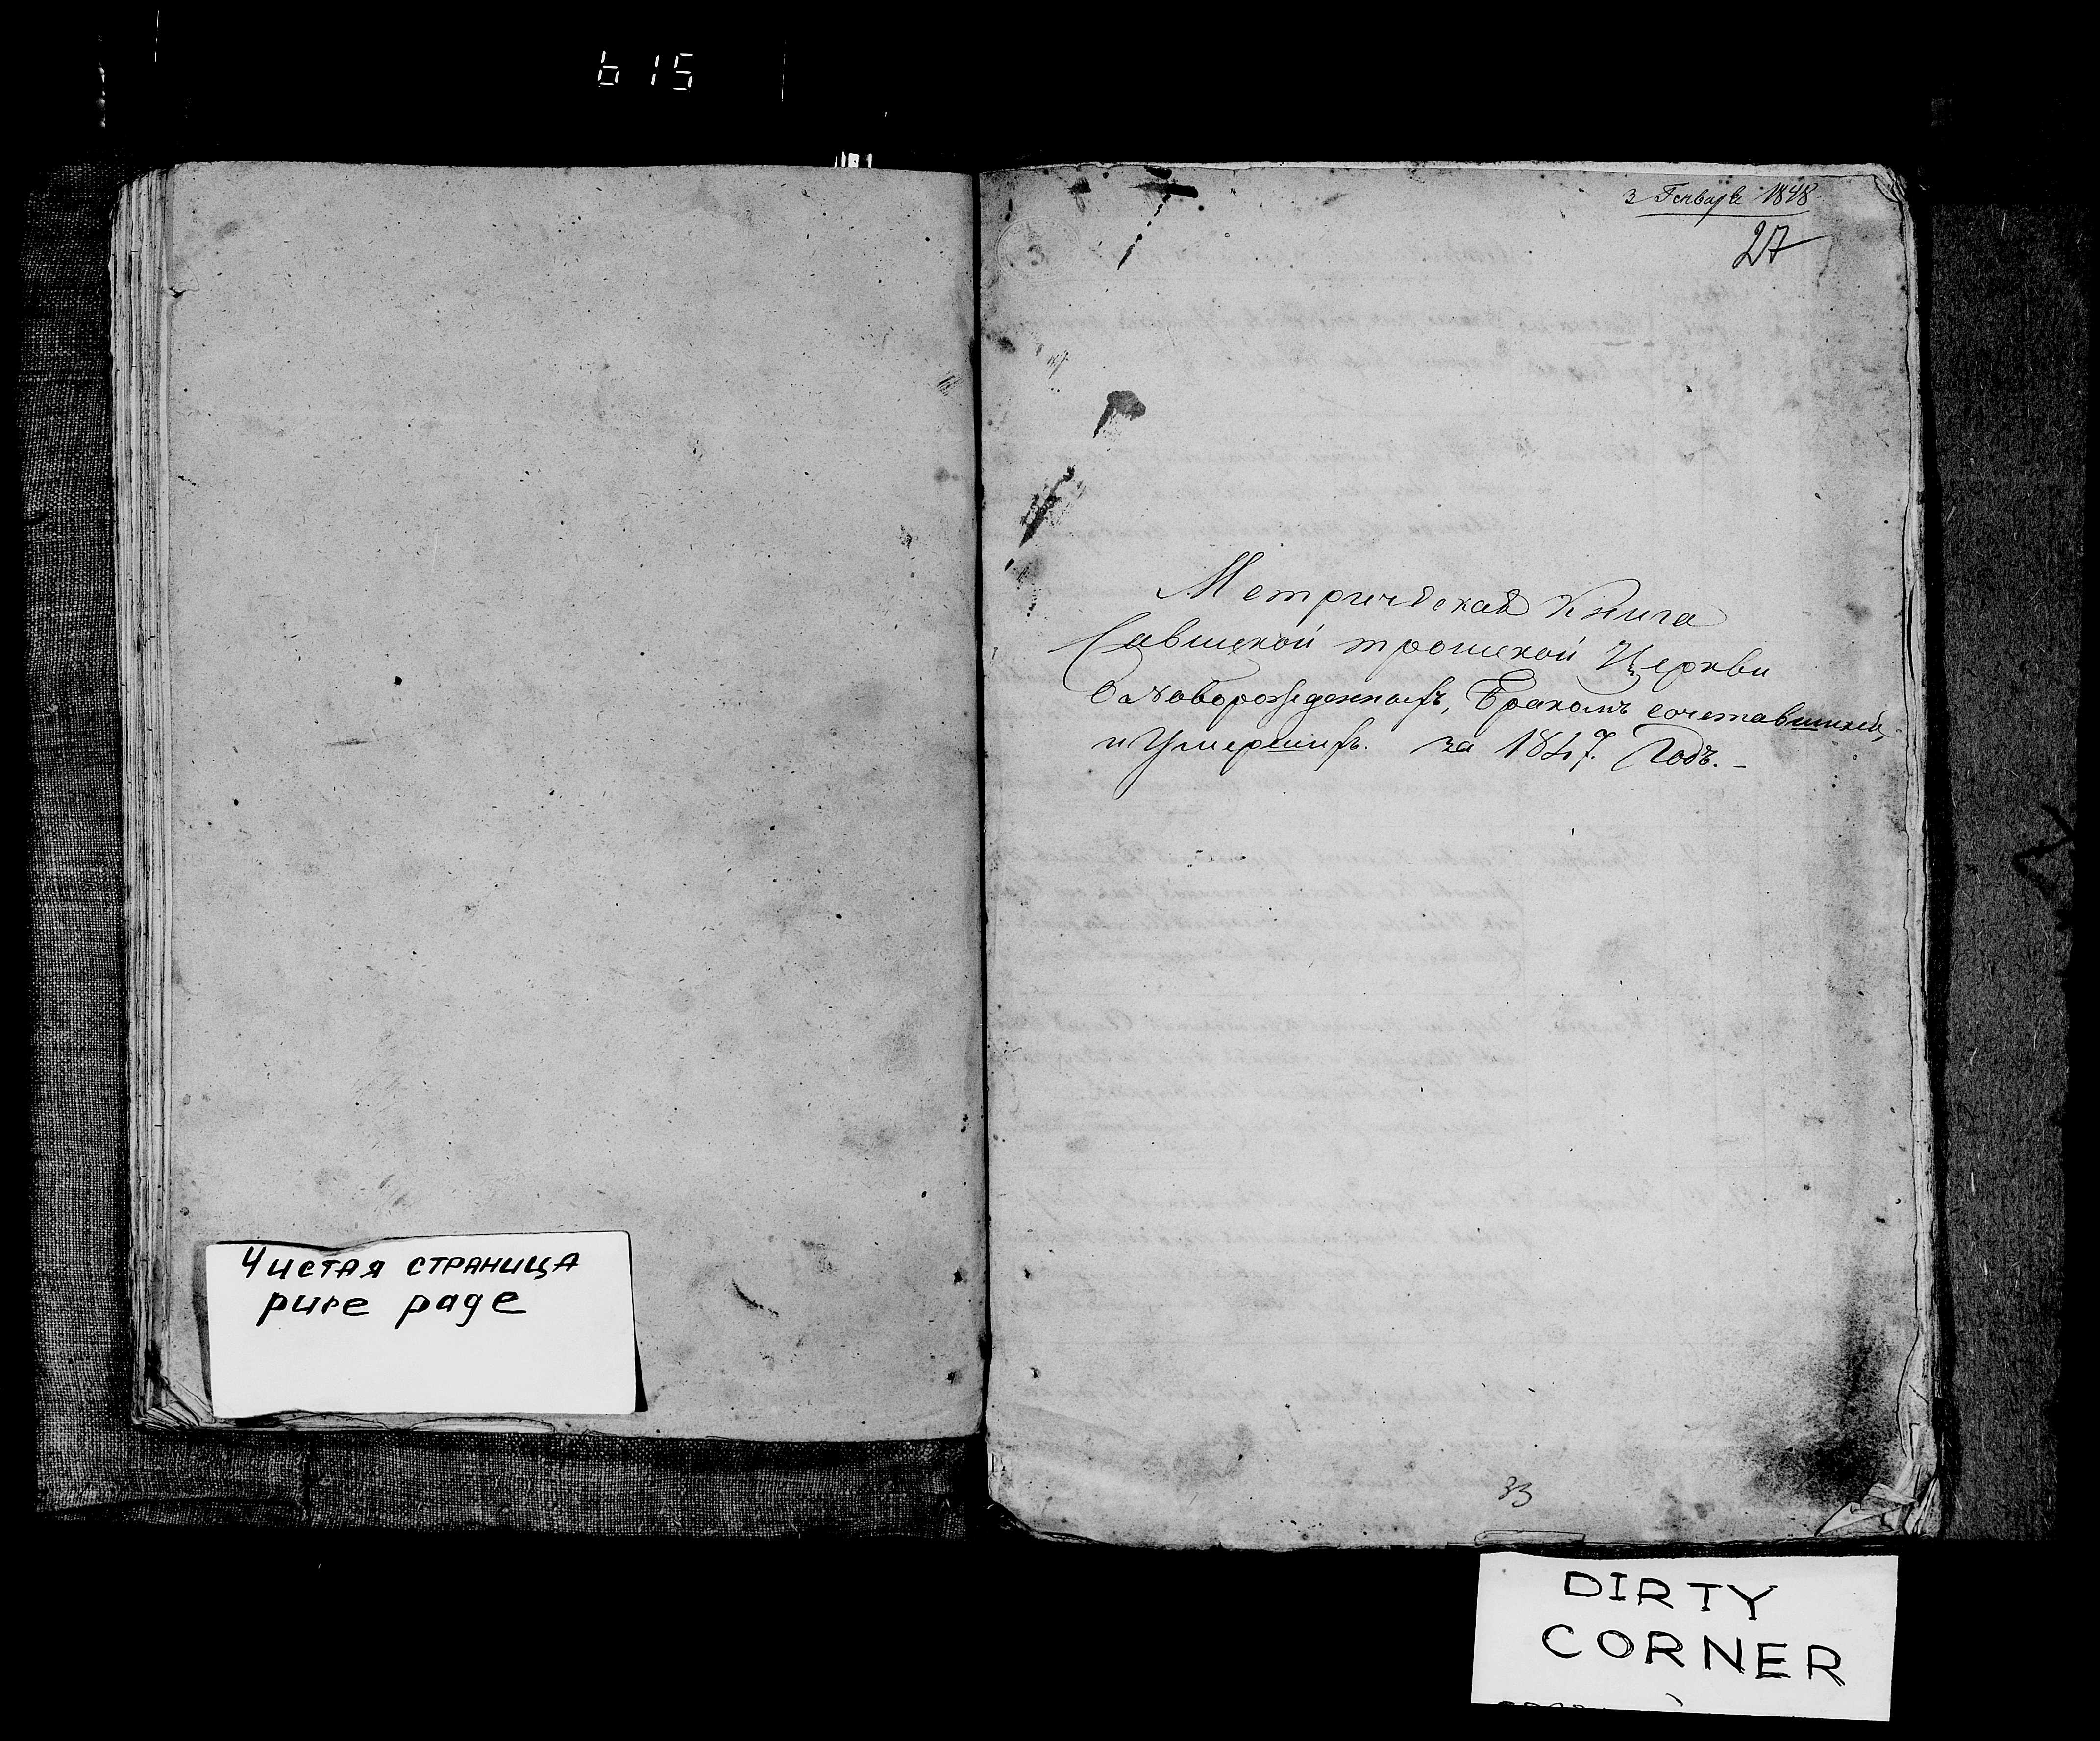 615
3 Генваря 1848
27
Метрическая Книга
Савинской троицкой Церкви
О Новорожденныхъ, Бракомъ сочетавшихся,
и Умершихъ. за 1847. Годъ. -
33
Чистая страница
pure page
DIRTY
CORNER